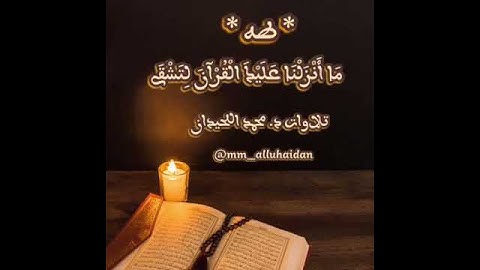 * طه *
مَا أَنْزَلْنَا عَلَيْكَ الْقُرْآنَ لِتَشْقَى
تلاوات د. محمد اللحيدان
@mm_alluhaidan